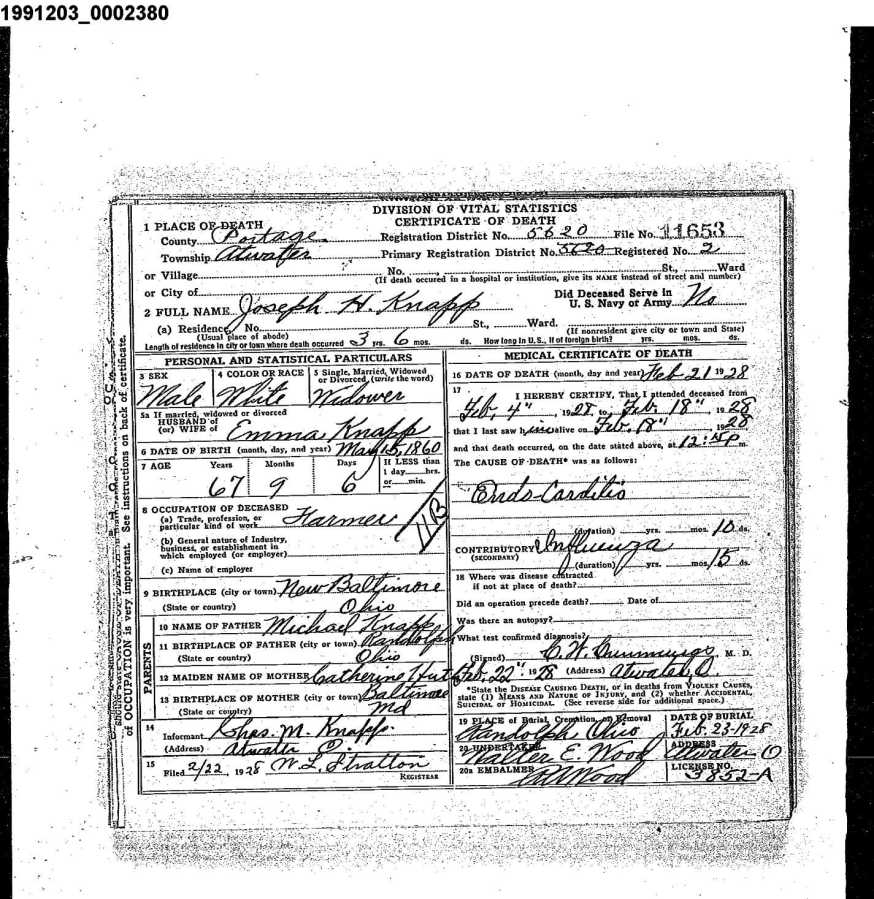 1991203_0002380
DIVISION OF VITAL STATISTICS
CERTIFICATE OF DEATH
1 PLACE OF DEATH
County Portage Registration District No. 5620 File No. 11653
Township Atwater Primary Registration District No. 5620 Registered No. 2
or Village No. St., Ward
(If death occured in a hospital or institution, give its NAME instead of street and number)
or City of
Did Deceased Serve in
U. S. Navy or Army No
2 FULL NAME Joseph H. Knapp
(a) Residence No. St., Ward.
(Usual place of abode) (If nonresident give city or town and State)
Length of residence in city or town where death occurred 3 yrs. 6 mos. ds. How long in U. S., if of foreign birth? yrs. mos. ds.
PERSONAL AND STATISTICAL PARTICULARS
3 SEX
Male
4 COLOR OR RACE
White
5 Single, Married, Widowed
or Divorced, (write the word)
Widower
5a If married, widowed or divorced
HUSBAND of
(or) WIFE of Emma Knapp
6 DATE OF BIRTH (month, day, and year) May 15, 1860
7 AGE Years Months Days If LESS than
1 day hrs.
or min.
67 9 6
8 OCCUPATION OF DECEASED
(a) Trade, profession, or
particular kind of work Farmer
(b) General nature of Industry,
business, or establishment in
which employed (or employer)
(c) Name of employer
9 BIRTHPLACE (city or town) New Baltimore
(State or country) Ohio
PARENTS
10 NAME OF FATHER Michael Knapp
11 BIRTHPLACE OF FATHER (city or town) Randolph
(State or country) Ohio
12 MAIDEN NAME OF MOTHER Catherine
13 BIRTHPLACE OF MOTHER (city or town) Baltimore
(State or country) Md
14
Informant Chas. M. Knapp
(Address) Atwater O.
15
Filed 2/22, 1928 W. L. Stratton
REGISTRAR
MEDICAL CERTIFICATE OF DEATH
16 DATE OF DEATH (month, day and year) Feb 21 1928
17
I HEREBY CERTIFY, That I attended deceased from
Feb. 4", 1928, to Feb. 18", 1928
that I last saw him alive on Feb. 18", 1928
and that death occurred, on the date stated above, at m.
The CAUSE OF DEATH* was as follows:
Endo-Carditis
(duration) yrs. mos. 10 ds.
CONTRIBUTORY Influenza
(SECONDARY)
(duration) yrs. mos. 15 ds.
18 Where was disease contracted
if not at place of death?
Did an operation precede death? Date of
Was there an autopsy?
What test confirmed diagnosis?
(Signed) M. D.
Feb. 22", 1928 (Address) Atwater, O.
*State the DISEASE CAUSING DEATH, or in deaths from VIOLENT CAUSES,
state (1) MEANS AND NATURE OF INJURY, and (2) whether ACCIDENTAL,
SUICIDAL or HOMICIDAL. (See reverse side for additional space.)
19 PLACE of Burial, Cremation, or Removal
Randolph Ohio
DATE OF BURIAL
Feb. 23-1928
20 UNDERTAKER
Walter E. Wood
ADDRESS
Atwater O
20a EMBALMER Wood
LICENSE NO.
3852-A
of OCCUPATION is very important. See instructions on back of certificate.